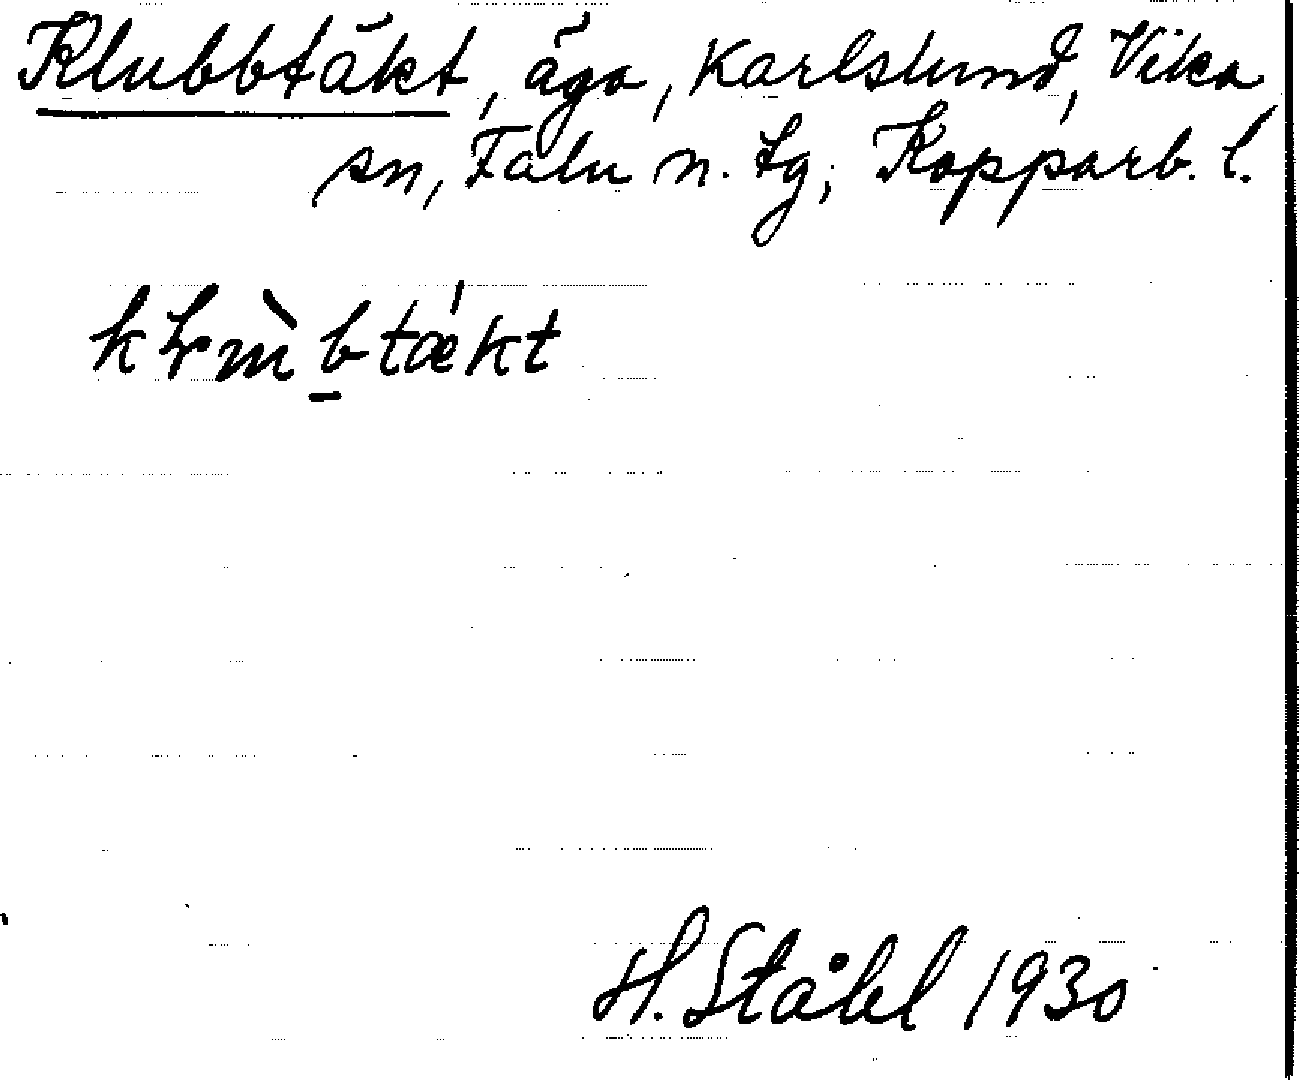 Klubbtäkt, äga, Karlslund, Vika
sn, Falu n. tg, Kopparb. l.
H. Ståhl 1930